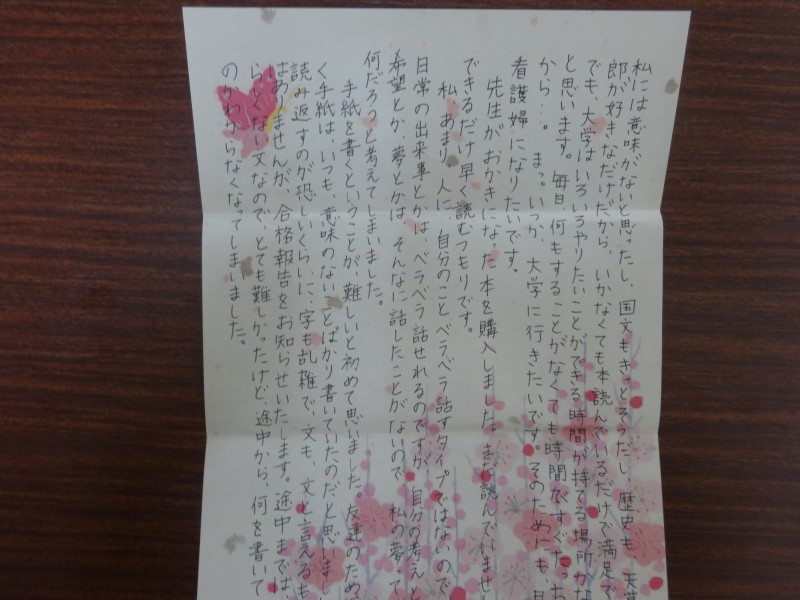 私には意味がないと思ったし、国文もきっとそうだし、歴史も、天草四
郎が好きなだけだから、いかなくても本読んでいるだけで満足で
でも、大学はいろいろやりたいことができる時間が持てる場所かな
と思います。毎日、何もすることがなくても時間ですぐたっち
から…。まっ。いつか、大学に行きたいです。そのためにも、
看護婦になりたいです。
先生がおかきになった本を購入しました。まだ読んでいません
できるだけ早く読むつもりです。
私、あまり、人に、自分のことベラベラ話すタイプではないので、
日常の出来事とかは、ベラベラ話せれるのですが、自分の考えと
希望とか、夢とかは、そんなに話したことがないので、私の夢って
何だろうと考えてしまいました。
手紙を書くということが、難しいと初めて思いました。友達のため
く手紙は、いつも、意味のないことばかり書いていたのだと思いまし
読み返すのが恐しいくらいに、字も乱雑で、文も、文と言えるも
はありませんが、合格報告をお知らせいたします。途中までは、
らしくない文なので、とても難しかったけど、途中から、何を書いて
のかわからなくなってしまいました。